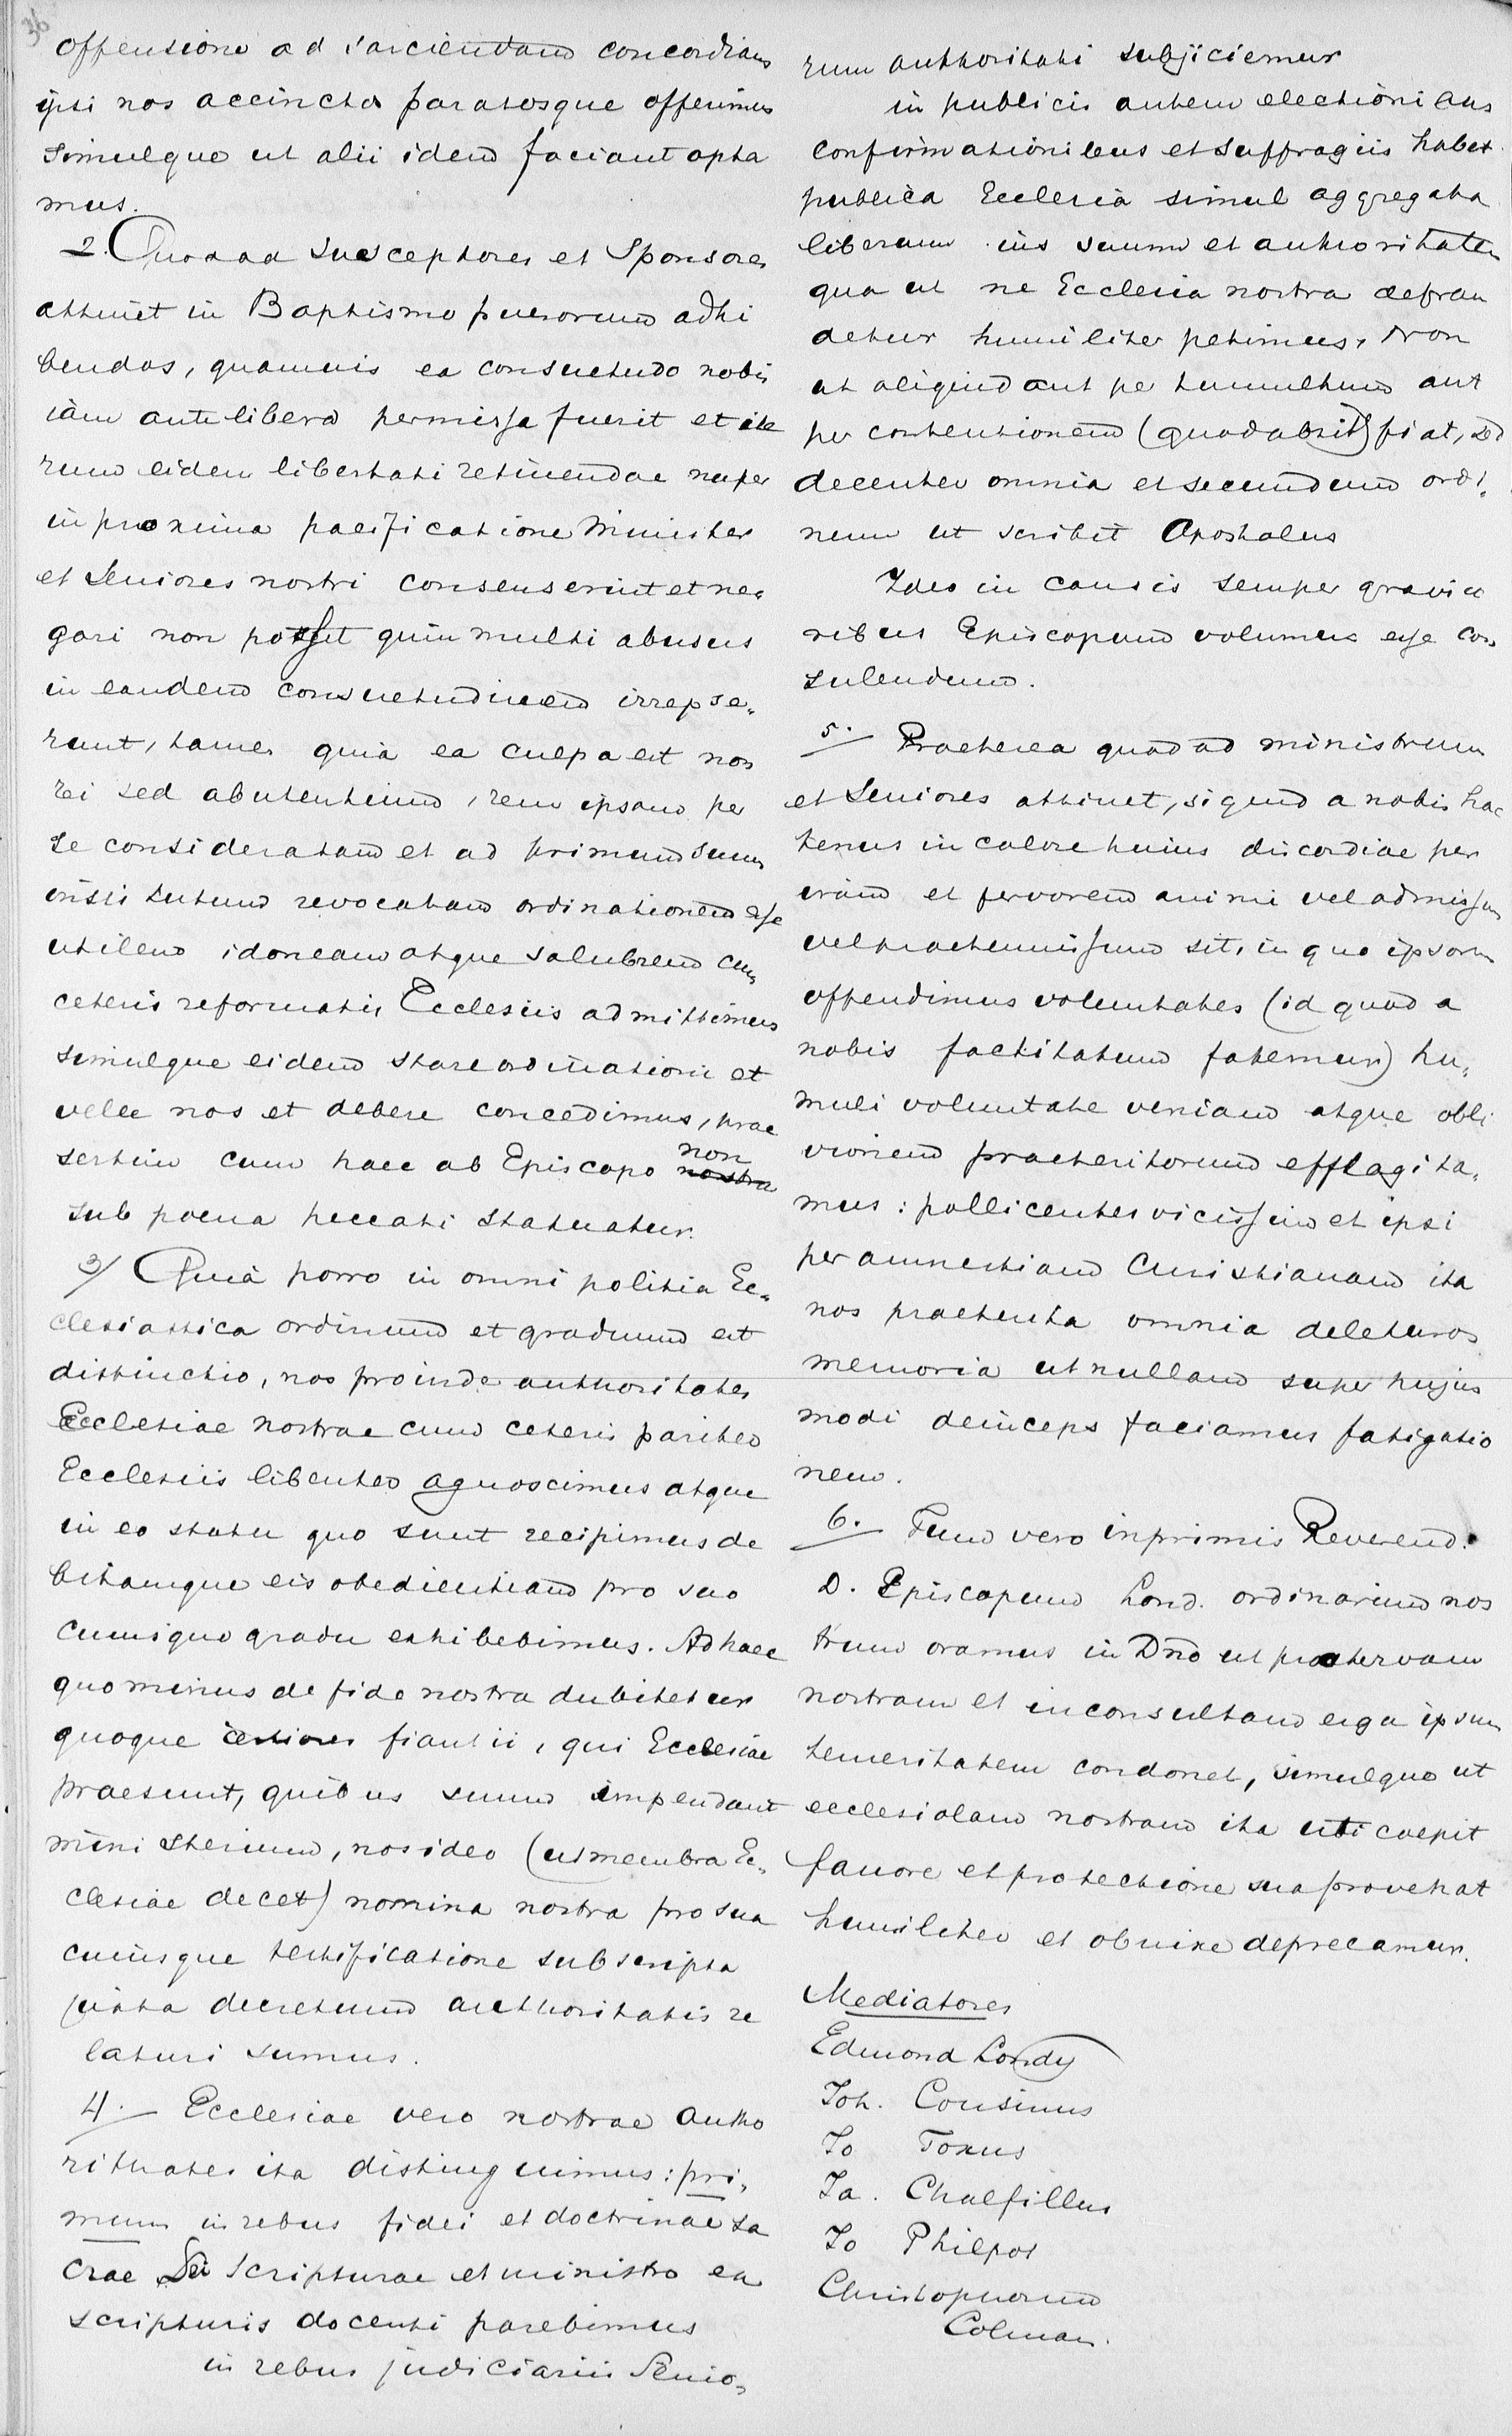 36
offensione ad sarciendam concordiam
ipsi nos accinctos paratosque offerimus
simulque ut alii idem faciant opta
mus.
2. Quod ad susceptores et Sponsores
attinet in Baptismo puerorum adhi
bendos, quamuis ea consuetudo nobis
iam ante libera permissa fuerit et ite
rum eidem libertati retinendae nuper
in proxima pacificatione Minister
et Seniores nostri consenserint et ne„
gari non possit quin multi abusus
in eandem consuetudinem irrepse„
runt, tamen quia ea culpa est non
rei sed abutentium, rem ipsam per
se consideratam et ad primum suum
institutum revocatam ordinationem esse
utilem idoneam atque salubrem cum
ceteris reformatis Ecclesiis admittimus
simulque eidem stare ordinationi et
velle nos et debere concedimus, prae
sertim cum haec ab Episcopo non
sub poena peccati statuatur.
3/ Quia porro in omni politia Ec„
clesiastica ordinum et graduum est
distinctio, nos proinde authoritates
Ecclesiae nostrae cum ceteris pariter
Ecclesiis libenter agnoscimus atque
in eo statu quo sunt recipimus de
bitamque eis obedientiam pro suo
cuiusque gradu exhibebimus. Ad haec
quo minus de fide nostra dubitetur
quoque certiores fiant ii, qui Ecclesiae
praesunt, quibus suum impendant
ministerium, nos ideo (ut membra Ec„
clesiae decet) nomina nostra pro sua
cuiusque testificatione subscripta
juxta decretum authoritatis re
laturi sumus.
4. Ecclesiae vero nostrae autho
ritates ita distinguimus: pri„
mum in rebus fidei et doctrinae sa
crae Dei Scripturae et ministro ea
scripturis docenti parebimus
in rebus judiciariis Senio„
rum authoritati subjiciemur
in publicis autem electionibus
confirmationibus et suffragiis habet
publica Ecclesia simul aggregata
liberum ius suum et authoritatem
qua ut ne Ecclesia nostra defrau
detur humiliter petimus, Non
ut aliquid aut per tumultum aut
per contentionem (quod absit) fiat, sed
decenter omnia et secundum ordi„
nem ut scribit Apostolus
Ideo in causis semper gravio
ribus Episcopum volumus esse con„
sulendum.
5. Praeterea quod ad ministrum
et Seniores attinet, si quid a nobis hac
tenus in calore huius discordiae per
iram et fervorem animi vel admissum
vel praetermissum sit, in quo ipsorum
offendimus voluntates (id quod a
nobis factitatum fatemur) hu„
muli voluntate veniam atque obli
vionem praeteritorum efflagita„
mus: pollicentes vicissim et ipsi
per amnestiam Christianam ita
nos praeterita omnia deleturos
memoria ut nullam super hujus
modi deinceps faciamus fatigatio
nem.
6. Tum vero inprimis Reverend.
D. Episcopum Lond. ordinarium nos
trum oramus in Dno ut protervam
nostram et inconsultam erga ipsum
temeritatem condonet, simulque ut
ecclesiolam nostram ita uti coepit
favore et protectione sua provehat
humiliter et obnixe deprecamur.
Mediatores
Edmond Londy
Joh. Cousinus
Jo Foxus
Ja. Chalfillus
Jo Philpot
Christophorum
Colman.